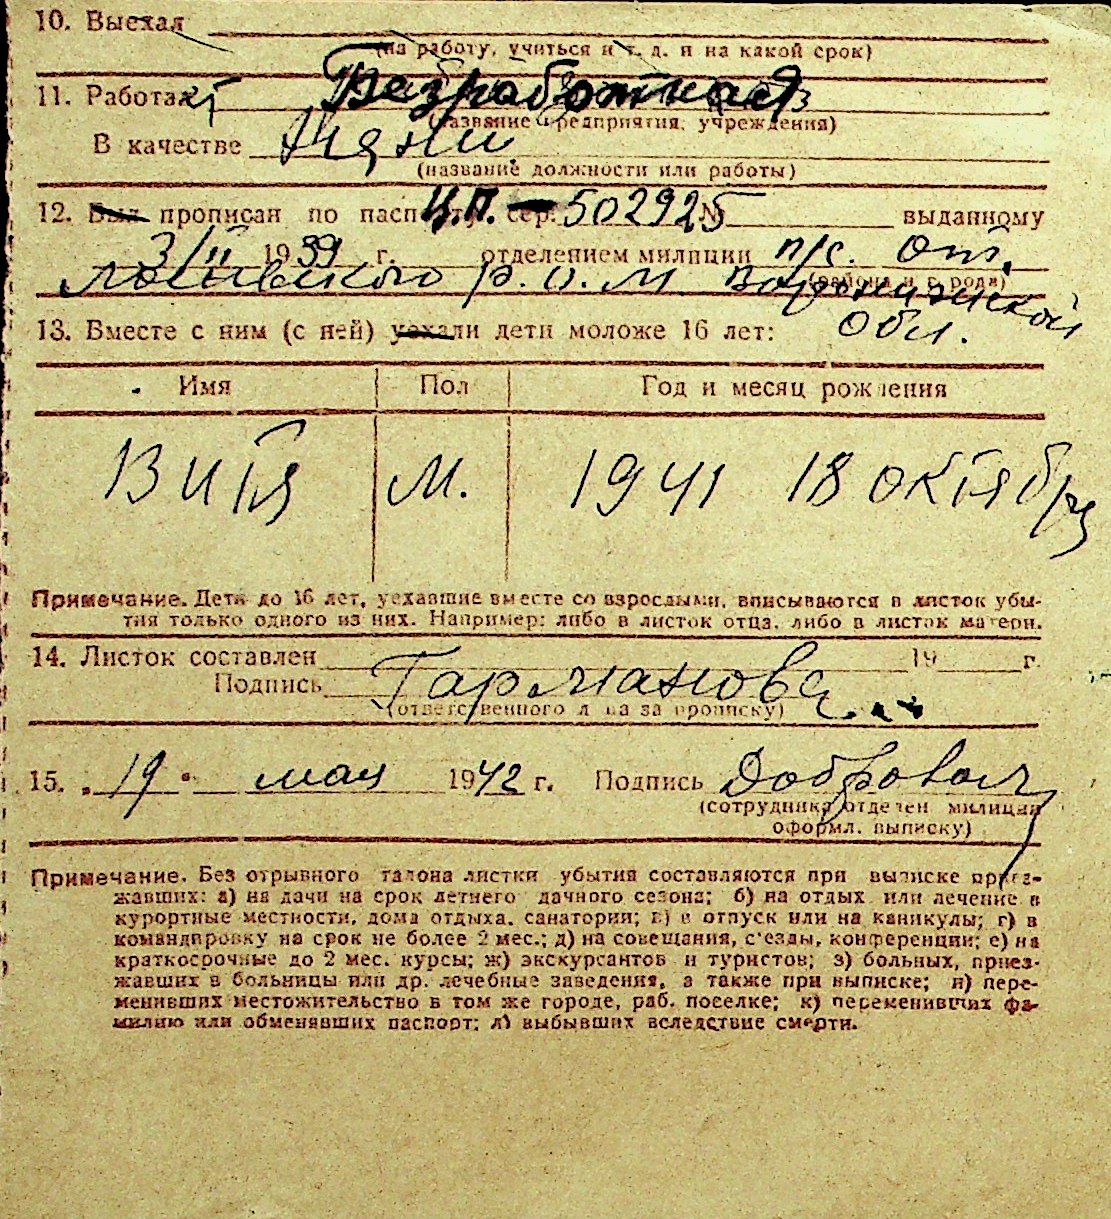 10. Выехал
(на работу, учиться и т. д. и на какой срок)
11. Работает Безработная
(название предприятия, учреждения)
В качестве Няни
(название должности или работы)
12. Был прописан по паспорту сер. Ц.П. — 502925 № выданному
3/II 1939 г. отделением милиции п/с. от.
(района и города)
р. о. м Воронежской
Обл.
13. Вместе с ним (с ней) уехали дети моложе 16 лет:
Имя Пол Год и месяц рождения
Витя М. 1941 18 октября
Примечание. Дети до 16 лет, уехавшие вместе со взрослыми, вписываются в листок убы-
тия только одного из них. Например: либо в листок отца, либо в листок матери.
14. Листок составлен 19 г.
Подпись Гарманова
(ответственного лица за прописку)
15. „19" мая 1942 г. Подпись
(сотрудника отделен милиции
оформл. выписку)
Примечание. Без отрывного талона листки убытия составляются при выписке приез-
жавших: а) на дачи на срок летнего дачного сезона; б) на отдых или лечение в
курортные местности, дома отдыха, санатории; в) в отпуск или на каникулы; г) в
командировку на срок не более 2 мес.; д) на совещания, с'езды, конференции; е) на
краткосрочные до 2 мес. курсы; ж) экскурсантов и туристов; з) больных, приез-
жавших в больницы или др. лечебные заведения, а также при выписке; и) пере-
менивших местожительство в том же городе, раб. поселке; к) переменивших фа-
милию или обменявших паспорт; л) выбывших вследствие смерти.